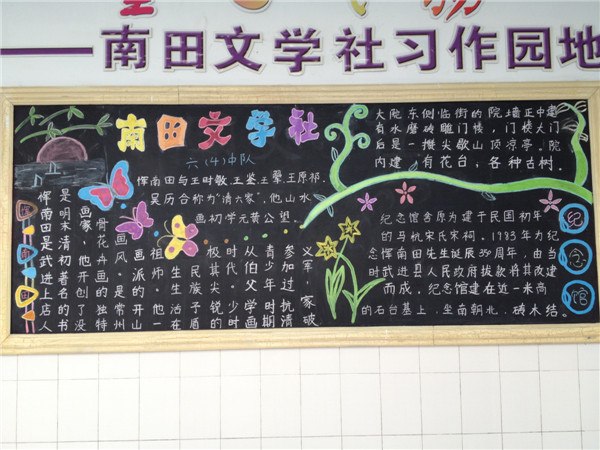 ——南田文学社习作园地
南田文学社
六（4）中队
恽南田与王时敏、王鉴、王翚、王原祁、
吴历合称为“清六家”，他山水
画初学元黄公望。
恽南田是武进上店人
是明末清初著名的书
画家，他开创了没
骨花卉画的独特
画风，是常州
画派的开山
祖师。他一
生生活在
民族矛盾
极其尖锐的
时代。少时
从伯父学画
青少年时期
参加过抗清
义军，家破
大院东侧临街的院墙正中建
有水磨砖雕门楼，门楼大门
后是一攒尖歇山顶凉亭。院
内建有花台，各种古树。
纪念馆舍原为建于民国初年
的马杭宋氏宋祠。1983年为纪
念恽南田先生诞辰359周年，由当
时武进县人民政府拨款将其改建
而成，纪念馆建在近一米高
的石台基上，坐南朝北，砖木结。
纪
念
馆